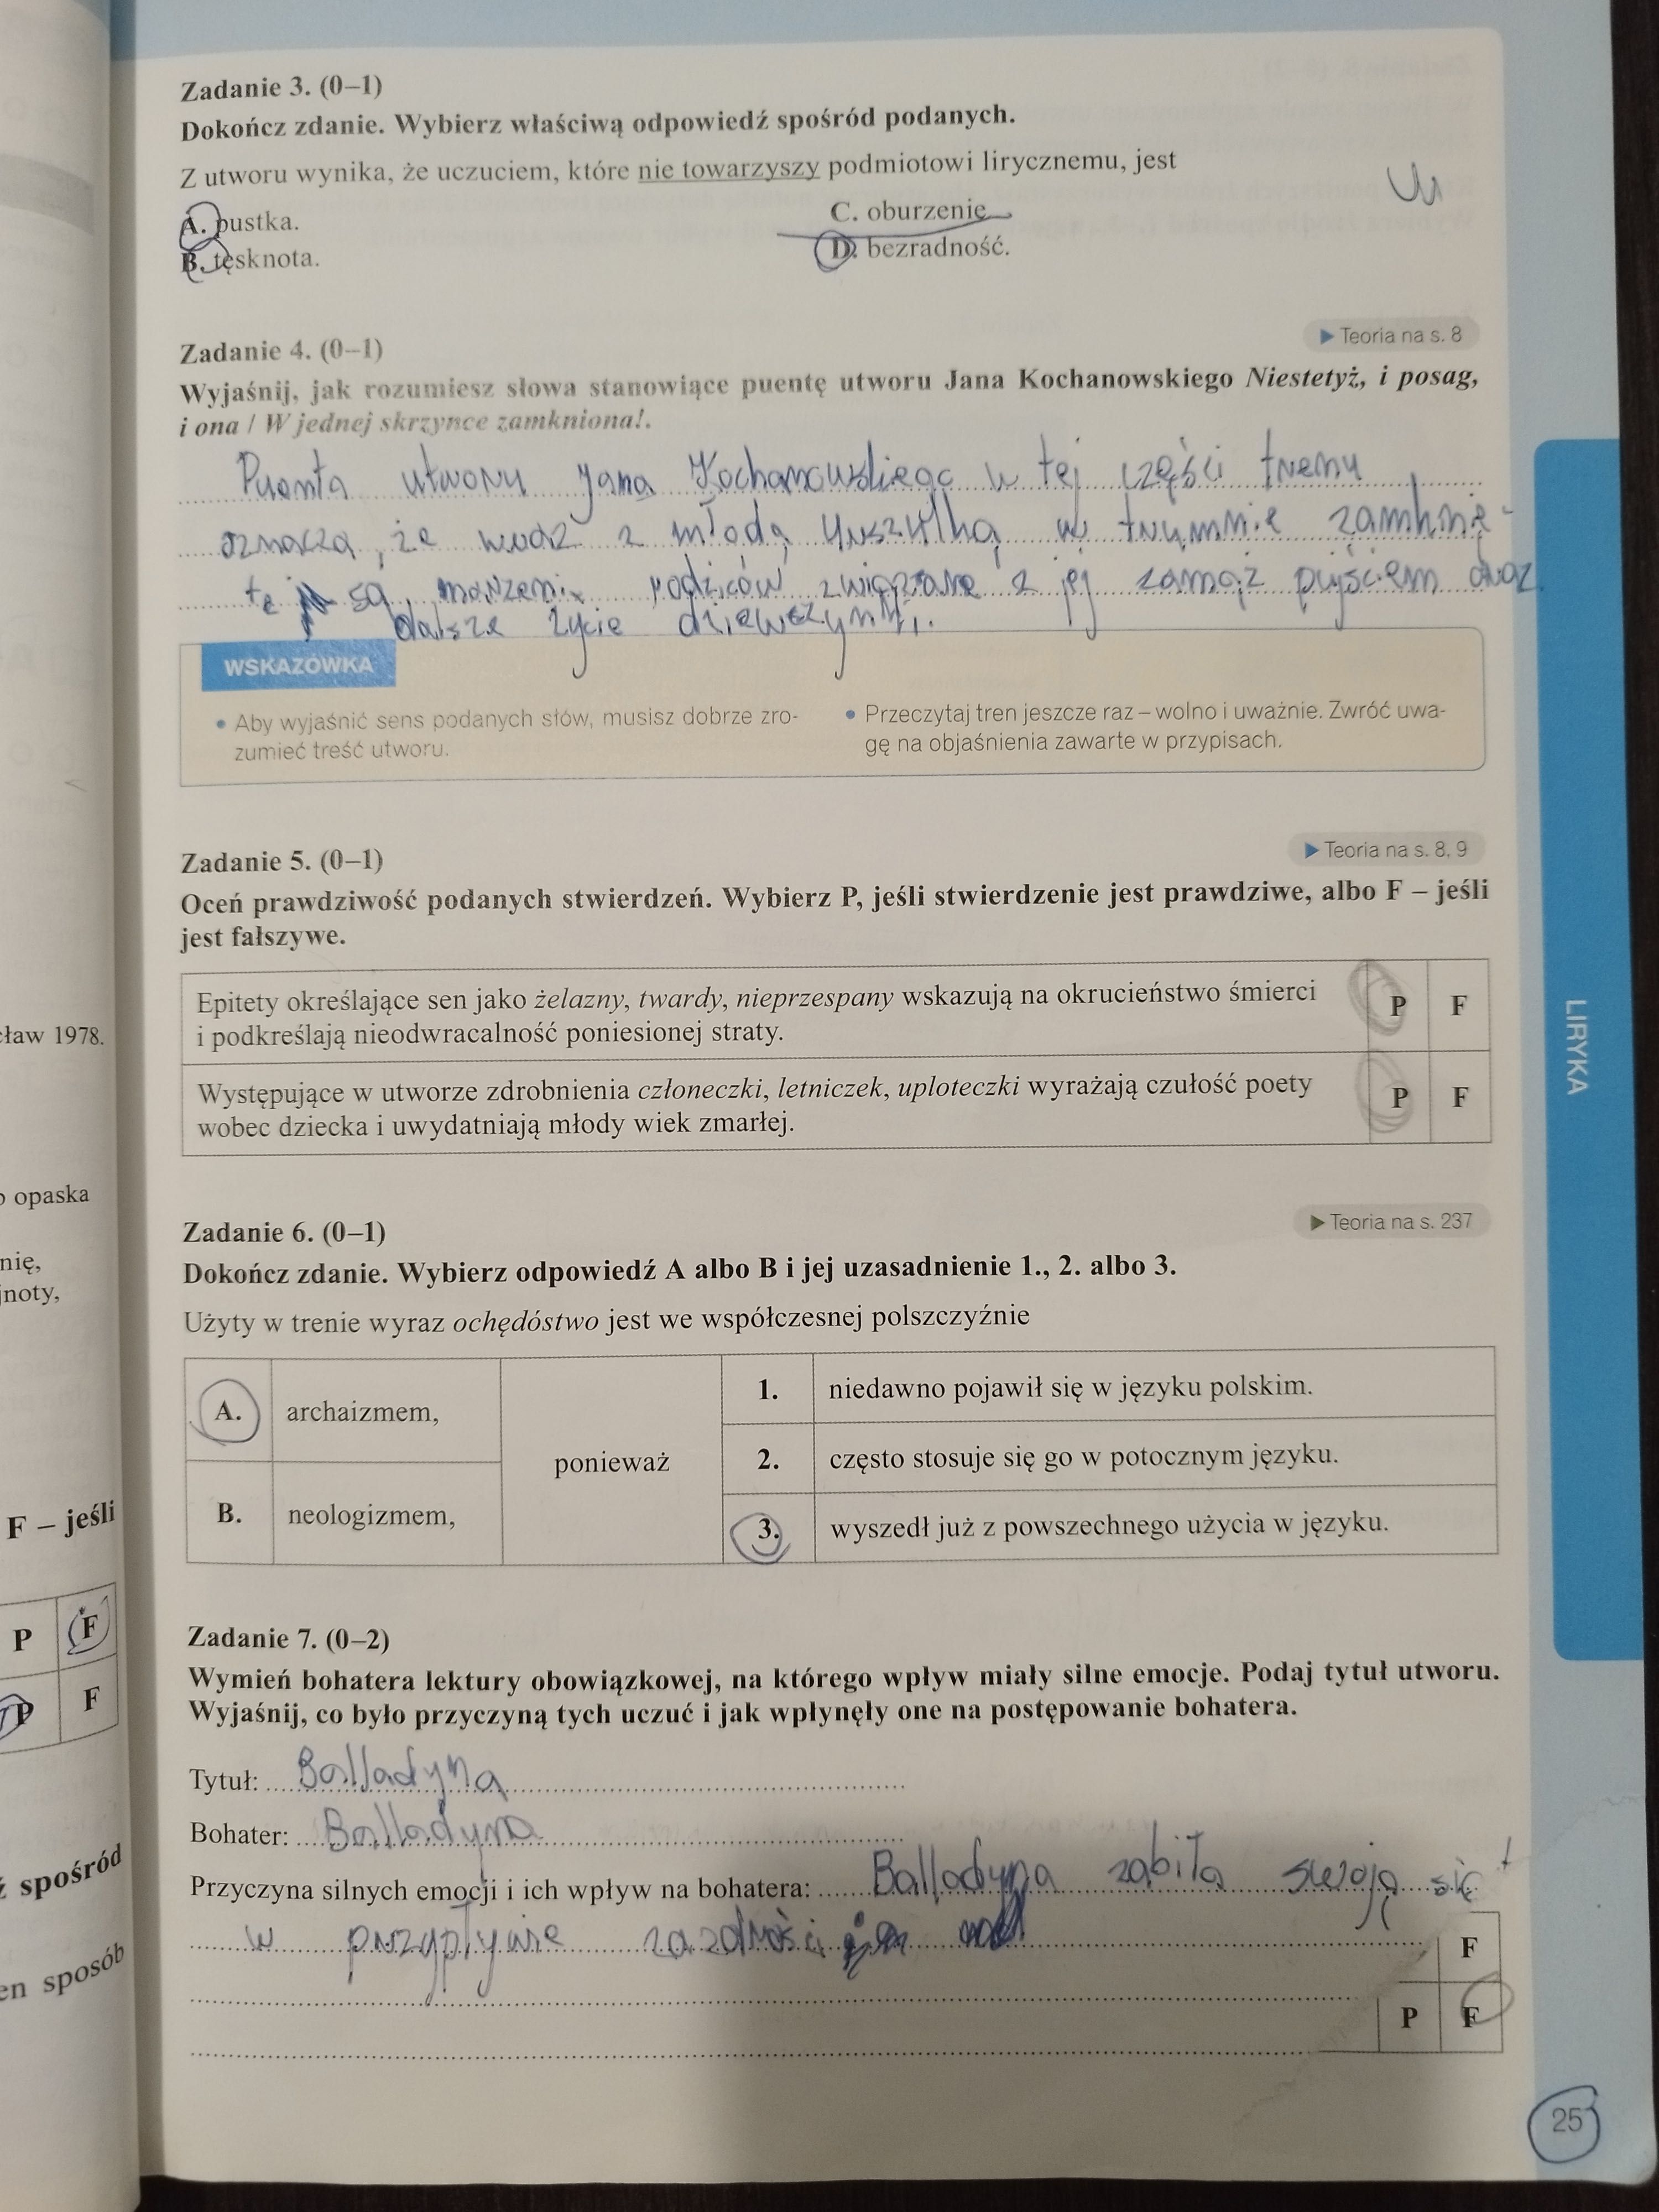 Zadanie 3. (0–1)
Dokończ zdanie. Wybierz właściwą odpowiedź spośród podanych.
Z utworu wynika, że uczuciem, które nie towarzyszy podmiotowi lirycznemu, jest
A. pustka.
B. tęsknota.
C. oburzenie.
D. bezradność.
▶ Teoria na s. 8
Zadanie 4. (0–1)
Wyjaśnij, jak rozumiesz słowa stanowiące puentę utworu Jana Kochanowskiego Niestetyż, i posag,
i ona / W jednej skrzynce zamkniona!.
Puenta utworu Jana Kochanowskiego w tej części trenu
oznacza, że wraz z młodą Urszulką w trumnie zamknię-
te są marzenia rodziców związane z jej zamąż pujściem oraz
dalsze życie dziewczynki.
WSKAZÓWKA
• Aby wyjaśnić sens podanych słów, musisz dobrze zro-
zumieć treść utworu.
• Przeczytaj tren jeszcze raz – wolno i uważnie. Zwróć uwa-
gę na objaśnienia zawarte w przypisach.
▶ Teoria na s. 8, 9
Zadanie 5. (0–1)
Oceń prawdziwość podanych stwierdzeń. Wybierz P, jeśli stwierdzenie jest prawdziwe, albo F – jeśli
jest fałszywe.
Epitety określające sen jako żelazny, twardy, nieprzespany wskazują na okrucieństwo śmierci
i podkreślają nieodwracalność poniesionej straty.
P F
Występujące w utworze zdrobnienia członeczki, letniczek, uploteczki wyrażają czułość poety
wobec dziecka i uwydatniają młody wiek zmarłej.
P F
▶ Teoria na s. 237
Zadanie 6. (0–1)
Dokończ zdanie. Wybierz odpowiedź A albo B i jej uzasadnienie 1., 2. albo 3.
Użyty w trenie wyraz ochędóstwo jest we współczesnej polszczyźnie
A. archaizmem,
B. neologizmem,
ponieważ
1. niedawno pojawił się w języku polskim.
2. często stosuje się go w potocznym języku.
3. wyszedł już z powszechnego użycia w języku.
Zadanie 7. (0–2)
Wymień bohatera lektury obowiązkowej, na którego wpływ miały silne emocje. Podaj tytuł utworu.
Wyjaśnij, co było przyczyną tych uczuć i jak wpłynęły one na postępowanie bohatera.
Tytuł: Balladyna
Bohater: Balladyna
Przyczyna silnych emocji i ich wpływ na bohatera: Balladyna zabiła swoją
w przypływie zazdrości
F
P F
25
LIRYKA
ław 1978.
opaska
nię,
noty,
F – jeśli
P F
P F
spośród
en sposób